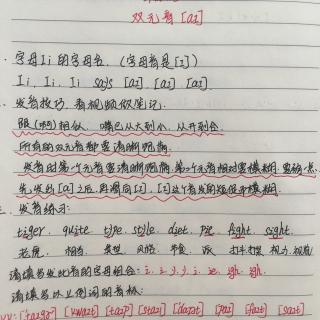 双元音 [aɪ]
字母Ii的字母名. (字母音是[ɪ])
Ii. Ii. Ii says [aɪ]. [aɪ]. [aɪ]
发音技巧. 看视频做笔记.
跟 (啊) 相似. 嘴巴从大到小. 从开到合.
所有的双元音都要清晰饱满.
发音时第一个元音要清晰饱满. 第二个元音相对要模糊.
先发出[a]之后. 再滑向[ɪ]. [ɪ]这个音发的短促平模糊.
发音练习:
tiger. quite type. style. diet. pie. fight. sight.
老虎. 相当. 类型 风格. 节食. 派 打斗打架 视力. 视觉
请填写发此音的字母组合: i. i. y. y. i. ie. igh. igh.
请填写以上例词的音标:
['taɪgə] [kwaɪt] [taɪp] [staɪl] ['daɪət] [paɪ] [faɪt] [saɪt]